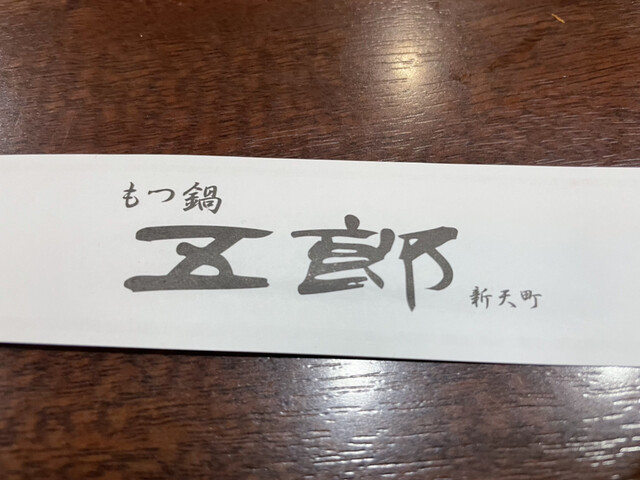 もつ鍋
五郎
新天町